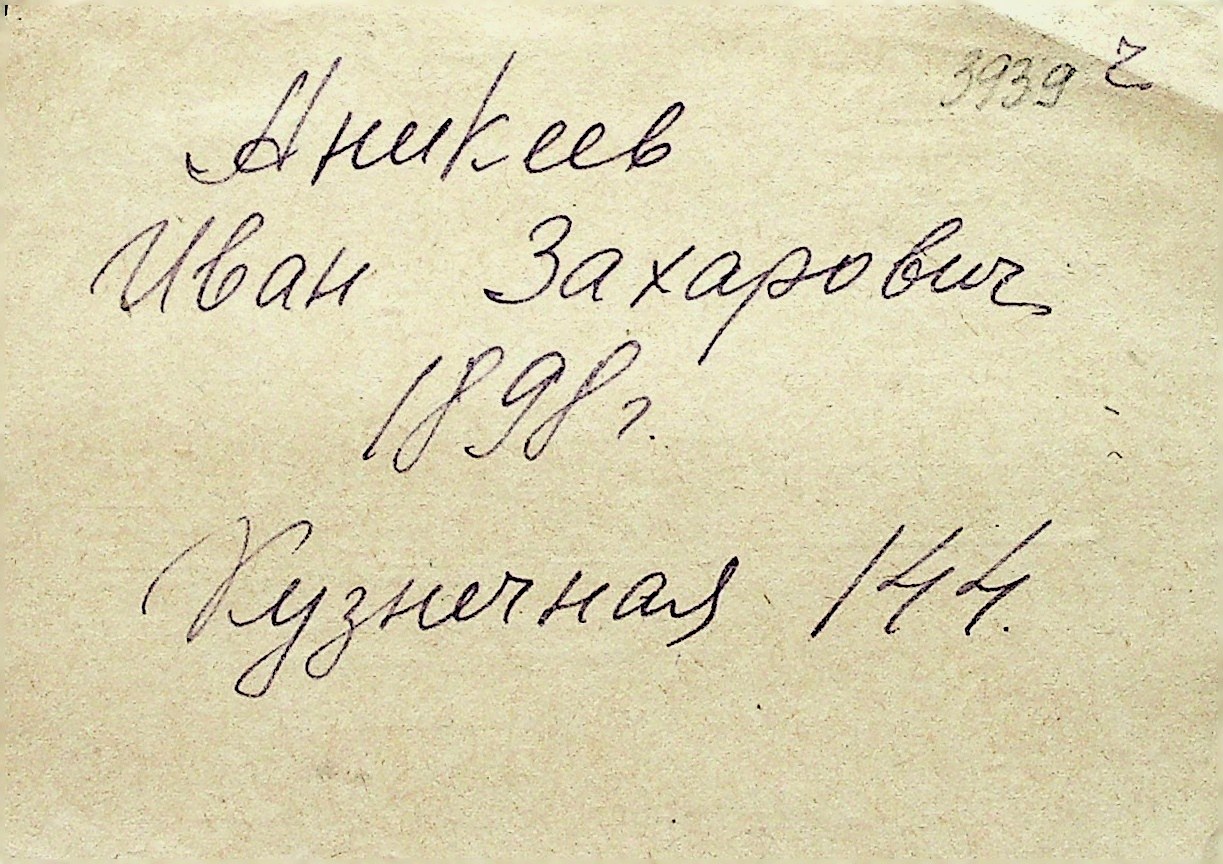 3939 ч
Аникеев
Иван Захарович
1898 г.
Кузнечная 144.